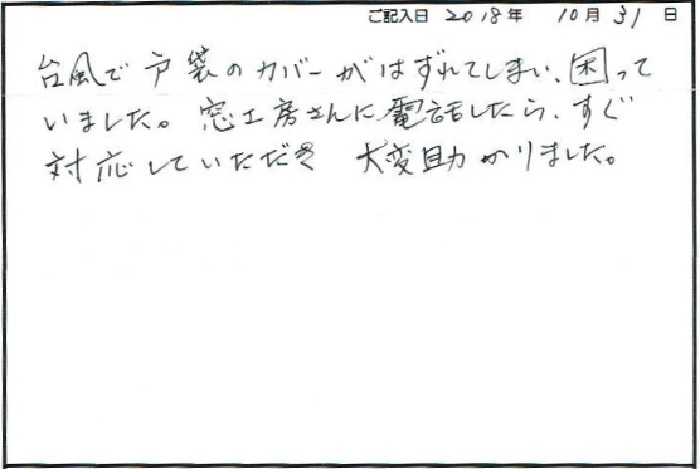 ご記入日 2018年 10月 31日
台風で戸袋のカバーがはずれてしまい、困って
いました。窓工房さんに電話したら、すぐ
対応していただき 大変助かりました。